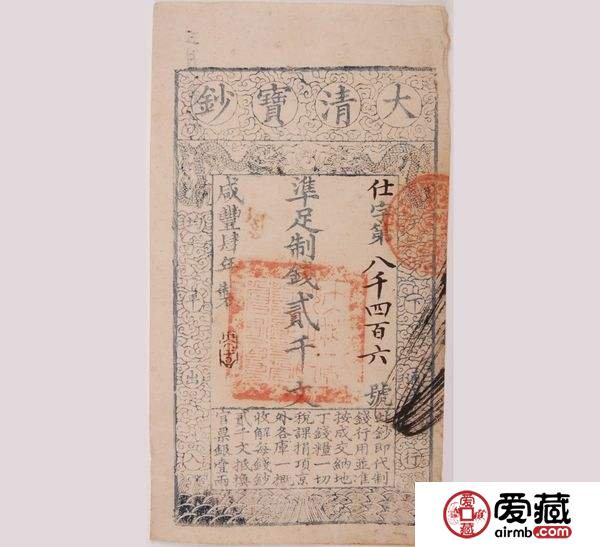 大清寶鈔
天下通行
仕字第八千四百六號
準足制錢貳千文
咸豐肆年製
均平出入
此鈔即代制
錢行用並准
按成交納地
丁錢糧一切
稅課捐項京
外各庫一概
收解每錢鈔
貳千文抵換
官票銀壹兩
爱藏
airmb.com